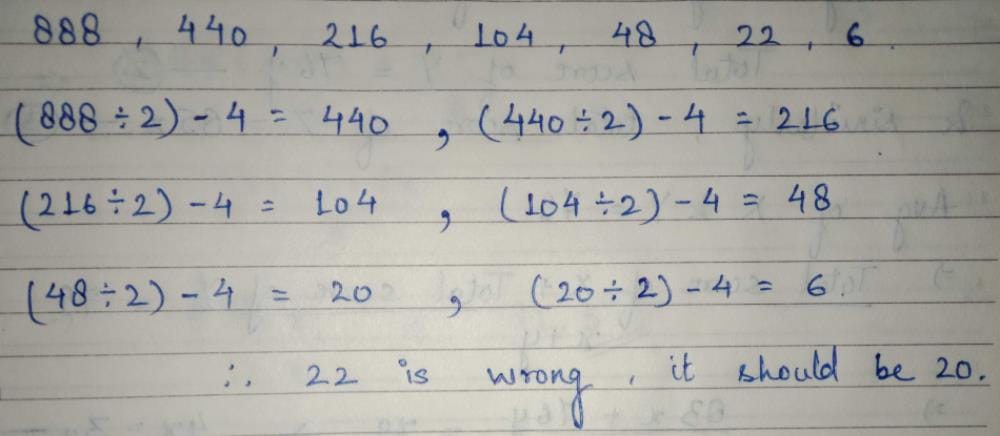 888 , 440 , 216 , 104 , 48 , 22 , 6 .
(888 ÷ 2) - 4 = 440 , (440 ÷ 2) - 4 = 216
(216 ÷ 2) - 4 = 104 , (104 ÷ 2) - 4 = 48
(48 ÷ 2) - 4 = 20 , (20 ÷ 2) - 4 = 6 .
∴ 22 is wrong , it should be 20 .